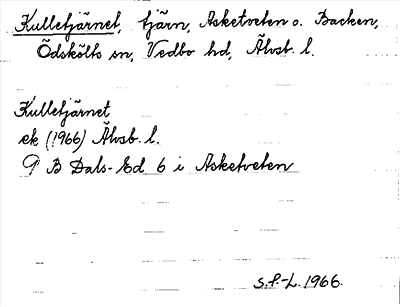 Kulletjärnet, tjärn, Asketveten o. Backen,
Ödskölts sn, Vedbo hd, Älvsb. l.
Kulletjärnet
ek (1966) Älvsb. l.
9 B Dals-Ed 6 i Asketveten
S.F.-L. 1966.